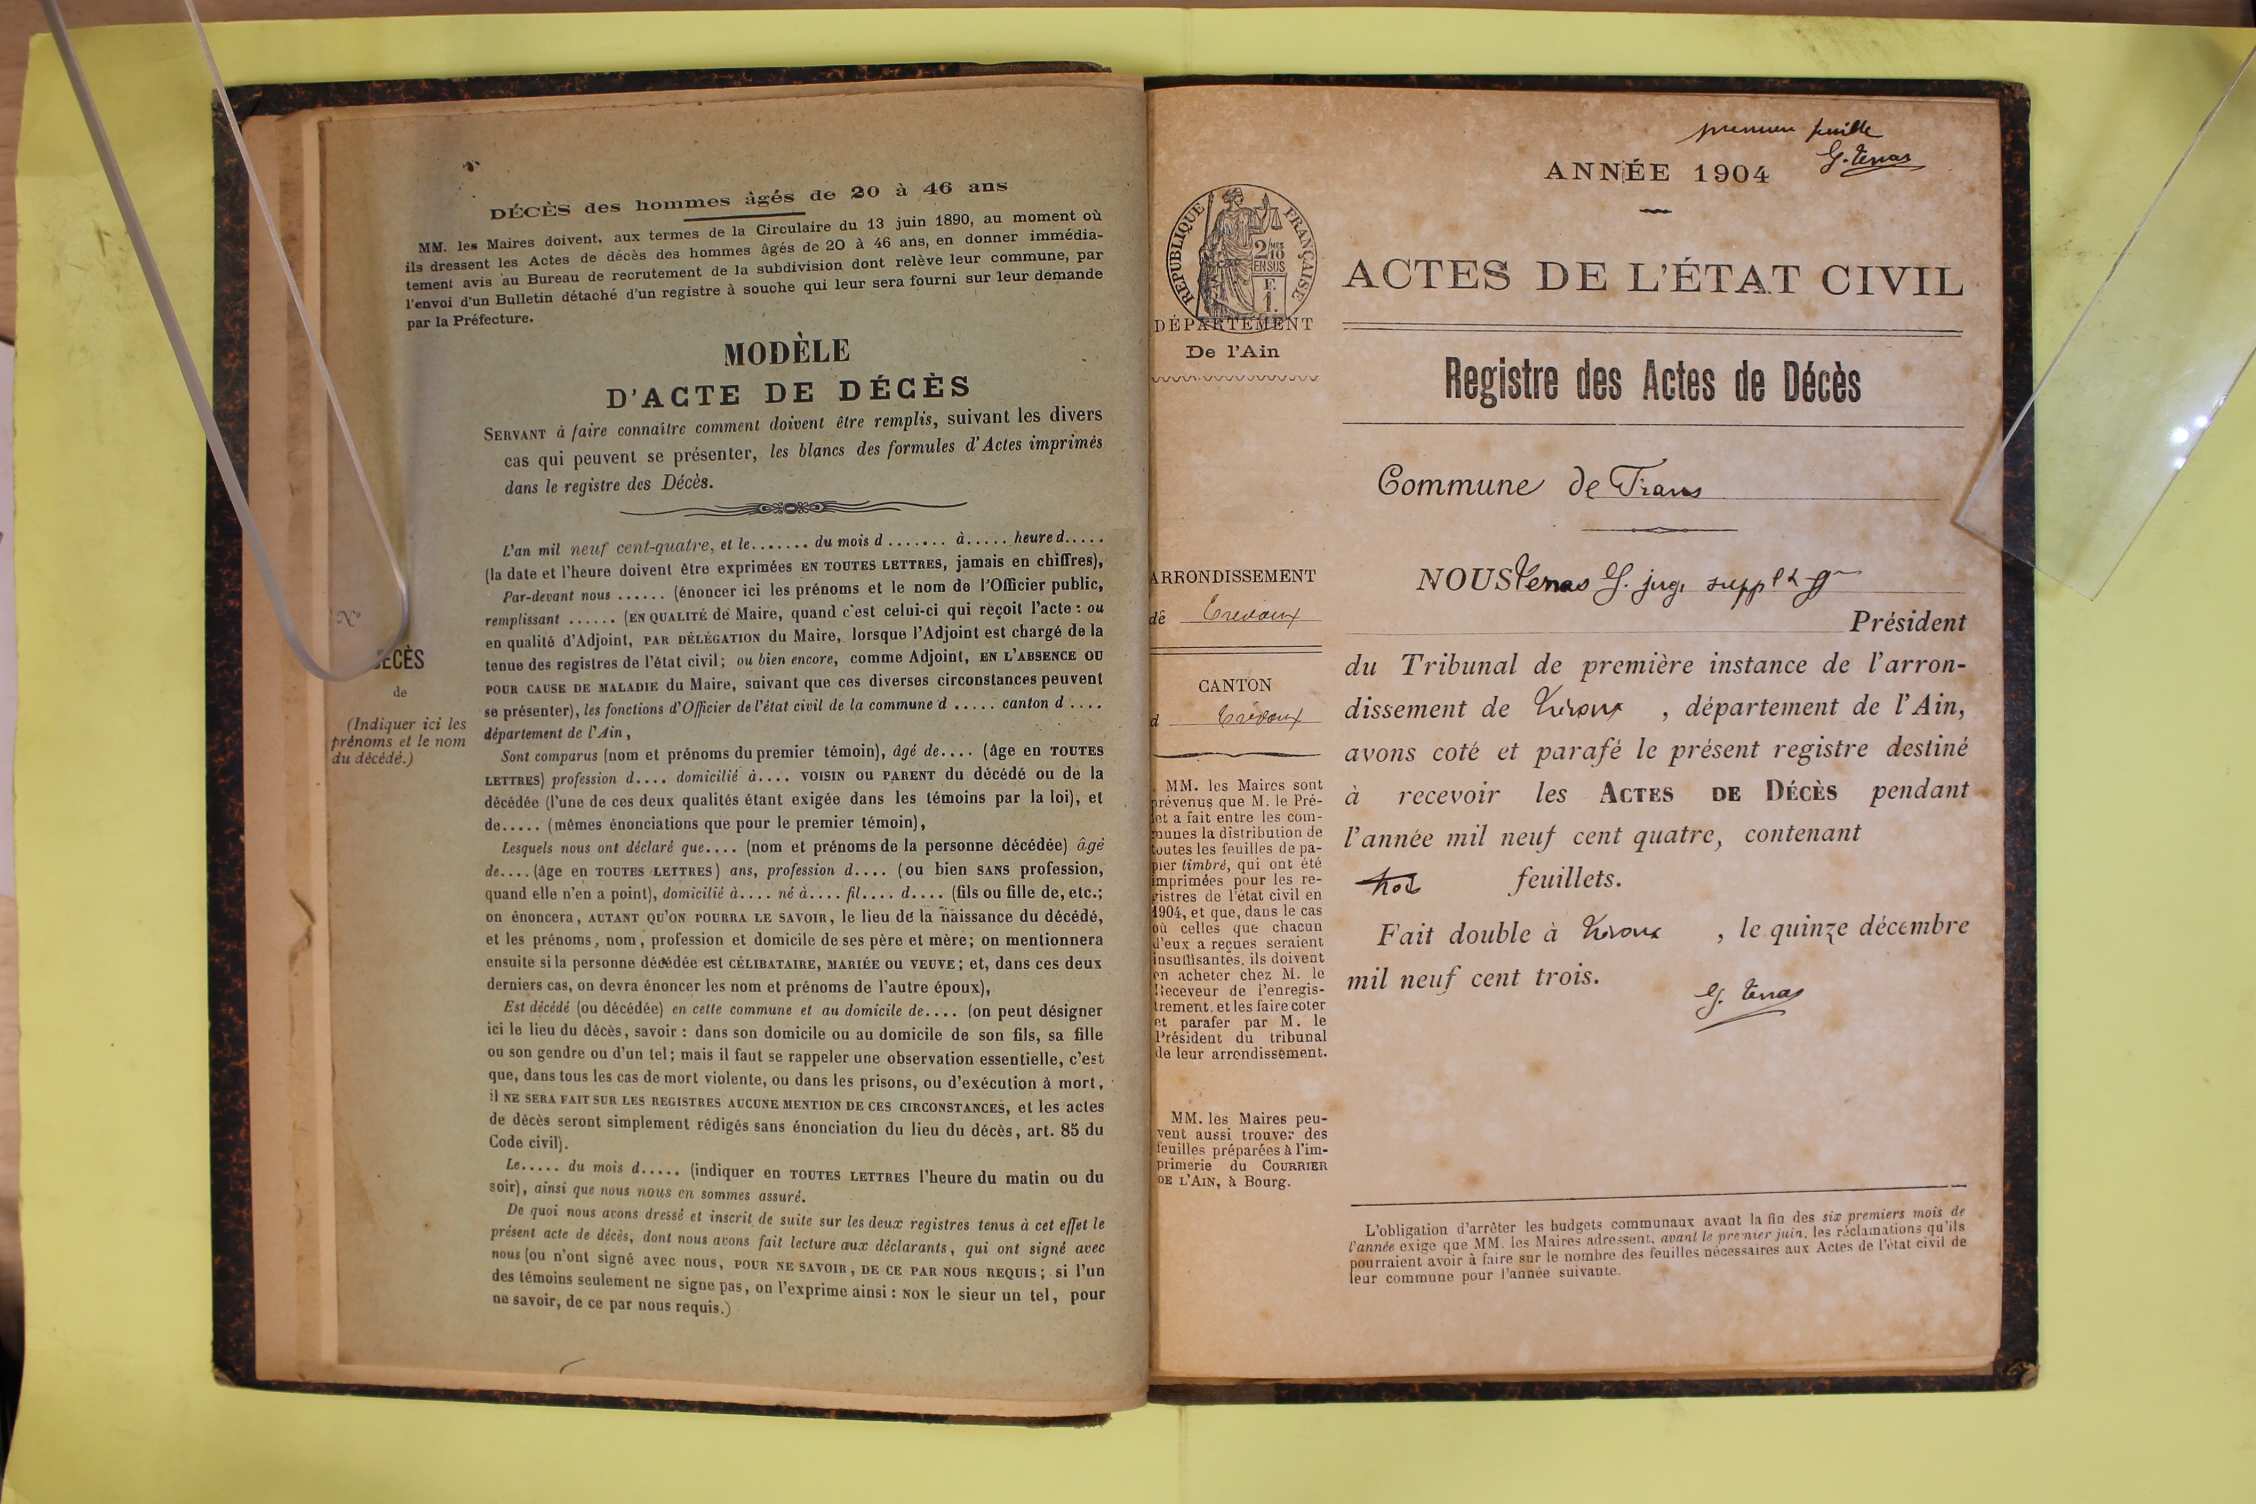 DÉCÈS des hommes âgés de 20 à 46 ans
MM. les Maires doivent, aux termes de la Circulaire du 13 juin 1890, au moment où
ils dressent les Actes de décès des hommes âgés de 20 à 46 ans, en donner immédia-
tement avis au Bureau de recrutement de la subdivision dont relève leur commune, par
l'envoi d'un Bulletin détaché d'un registre à souche qui leur sera fourni sur leur demande
par la Préfecture.
MODÈLE
D'ACTE DE DÉCÈS
SERVANT à faire connaître comment doivent être remplis, suivant les divers
cas qui peuvent se présenter, les blancs des formules d'Actes imprimés
dans le registre des Décès.
N°
DÉCÈS
de
(Indiquer ici les
prénoms et le nom
du décédé.)
L'an mil neuf cent-quatre, et le....... du mois d ....... à..... heure d.....
(la date et l'heure doivent être exprimées EN TOUTES LETTRES, jamais en chiffres),
Par-devant nous ...... (énoncer ici les prénoms et le nom de l'Officier public,
remplissant ...... (EN QUALITÉ de Maire, quand c'est celui-ci qui reçoit l'acte : ou
en qualité d'Adjoint, PAR DÉLÉGATION du Maire, lorsque l'Adjoint est chargé de la
tenue des registres de l'état civil; ou bien encore, comme Adjoint, EN L'ABSENCE OU
POUR CAUSE DE MALADIE du Maire, suivant que ces diverses circonstances peuvent
se présenter), les fonctions d'Officier de l'état civil de la commune d ..... canton d ....
département de l'Ain,
Sont comparus (nom et prénoms du premier témoin), âgé de.... (âge en TOUTES
LETTRES) profession d.... domicilié à.... VOISIN OU PARENT du décédé ou de la
décédée (l'une de ces deux qualités étant exigée dans les témoins par la loi), et
de..... (mêmes énonciations que pour le premier témoin),
Lesquels nous ont déclaré que.... (nom et prénoms de la personne décédée) âgé
de....(âge en TOUTES LETTRES) ans, profession d.... (ou bien SANS profession,
quand elle n'en a point), domicilié à.... né à.... fil.... d.... (fils ou fille de, etc.;
on énoncera, AUTANT QU'ON POURRA LE SAVOIR, le lieu de la naissance du décédé,
et les prénoms, nom, profession et domicile de ses père et mère; on mentionnera
ensuite si la personne décédée est CÉLIBATAIRE, MARIÉE ou VEUVE; et, dans ces deux
derniers cas, on devra énoncer les nom et prénoms de l'autre époux),
Est décédé (ou décédée) en cette commune et au domicile de.... (on peut désigner
ici le lieu du décès, savoir : dans son domicile ou au domicile de son fils, sa fille
ou son gendre ou d'un tel; mais il faut se rappeler une observation essentielle, c'est
que, dans tous les cas de mort violente, ou dans les prisons, ou d'exécution à mort,
il NE SERA FAIT SUR LES REGISTRES AUCUNE MENTION DE CES CIRCONSTANCES, et les actes
de décès seront simplement rédigés sans énonciation du lieu du décès, art. 85 du
Code civil).
Le..... du mois d..... (indiquer en TOUTES LETTRES l'heure du matin ou du
soir), ainsi que nous nous en sommes assuré.
De quoi nous avons dressé et inscrit de suite sur les deux registres tenus à cet effet le
présent acte de décès, dont nous avons fait lecture aux déclarants, qui ont signé avec
nous (ou n'ont signé avec nous, POUR NE SAVOIR, DE CE PAR NOUS REQUIS; si l'un
des témoins seulement ne signe pas, on l'exprime ainsi : NON le sieur un tel, pour
ne savoir, de ce par nous requis.)
premier feuille
G. Tenas
ANNÉE 1904
RÉPUBLIQUE FRANÇAISE
2/10 EN SUS
F. 1.
DÉPARTEMENT
De l'Ain
ARRONDISSEMENT
de Trévoux
CANTON
d Trévoux
MM. les Maires sont
prévenus que M. le Pré-
fet a fait entre les com-
munes la distribution de
toutes les feuilles de pa-
pier timbré, qui ont été
imprimées pour les re-
gistres de l'état civil en
1904, et que, dans le cas
où celles que chacun
d'eux a reçues seraient
insuffisantes, ils doivent
en acheter chez M. le
Receveur de l'enregis-
trement, et les faire coter
et parafer par M. le
Président du tribunal
de leur arrondissement.
MM. les Maires peu-
vent aussi trouver des
feuilles préparées à l'im-
primerie du COURRIER
DE L'AIN, à Bourg.
ACTES DE L'ÉTAT CIVIL
Registre des Actes de Décès
Commune de Frans
NOUS Tenas G. jug. suppl
Président
du Tribunal de première instance de l'arron-
dissement de Trévoux, département de l'Ain,
avons coté et parafé le présent registre destiné
à recevoir les ACTES DE DÉCÈS pendant
l'année mil neuf cent quatre, contenant
feuillets.
Fait double à Trévoux, le quinze décembre
mil neuf cent trois.
G. Tenas
L'obligation d'arrêter les budgets communaux avant la fin des six premiers mois de
l'année exige que MM. les Maires adressent, avant le premier juin, les réclamations qu'ils
pourraient avoir à faire sur le nombre des feuilles nécessaires aux Actes de l'état civil de
leur commune pour l'année suivante.